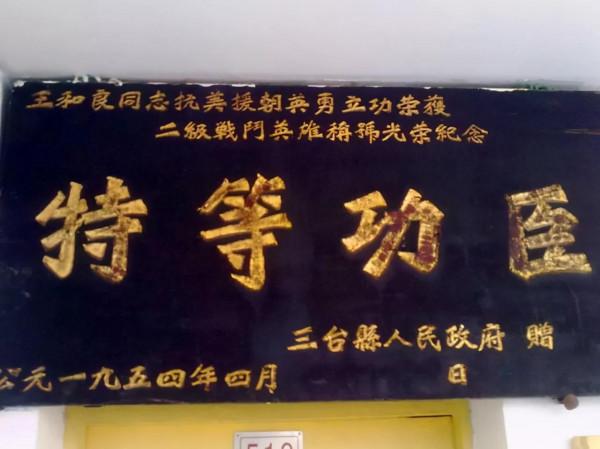 王和良同志抗美援朝英勇立功荣獲
二級戰鬥英雄稱號光荣紀念
特等功臣
三台縣人民政府 贈
公元一九五四年四月 日
510